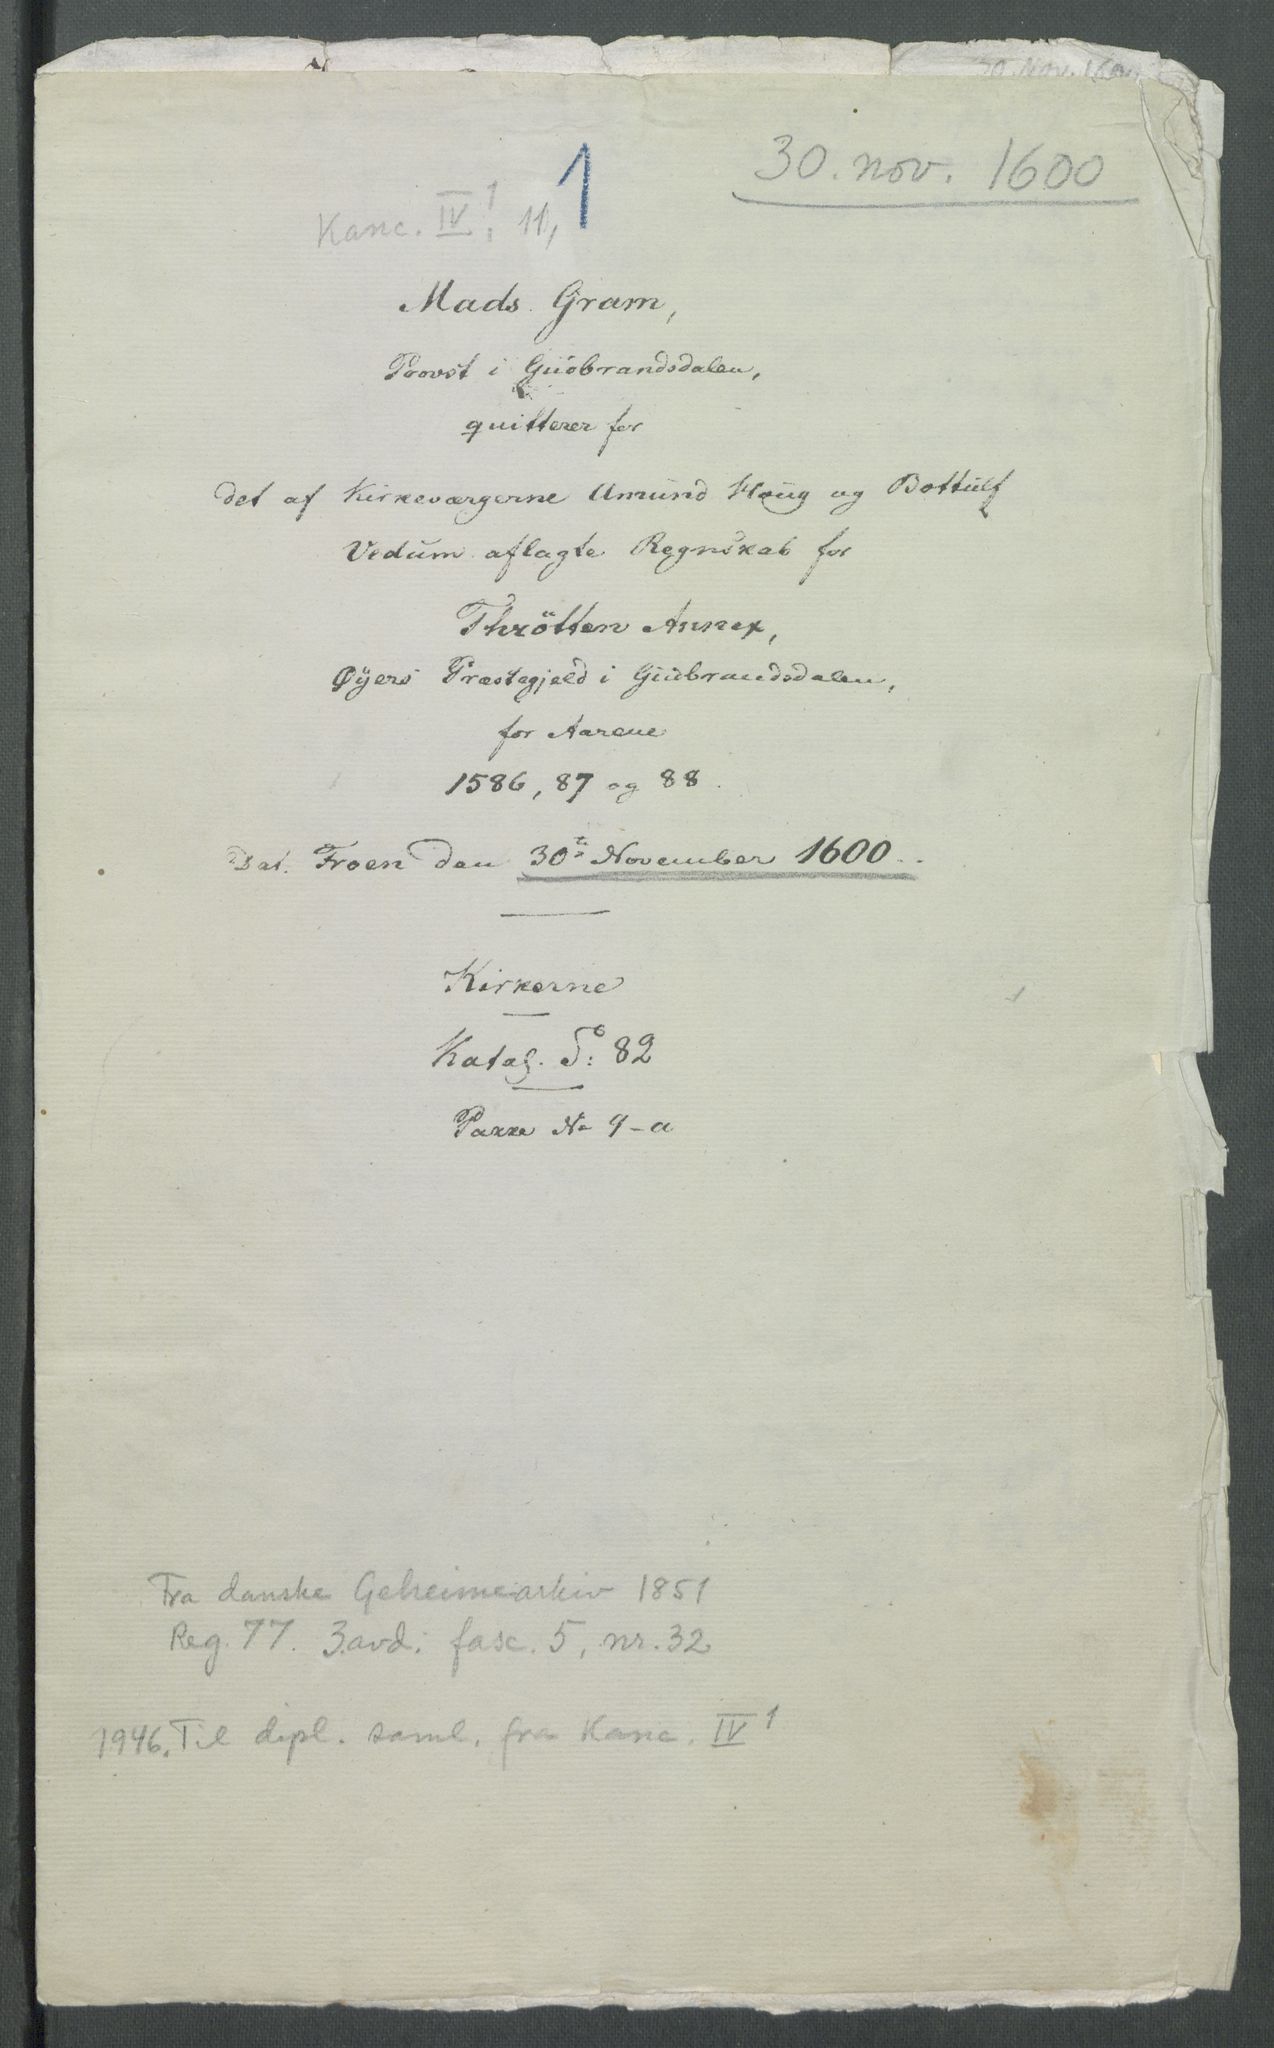 30. Nov. 1600
30. nov. 1600
1
Kanc. IV¹: 11,
Mads Gram,
Provst i Gudbrandsdalen,
quitterer for
det af Kirkeværgerne Amund Houg og Bottulf
Vedum aflagte Regnskab for
Thrötten Annex,
Øyers Præstegjeld i Gudbrandsdalen,
for Aarene
1586, 87 og 88.
Dat. Froen den 30te November 1600.
Kirkerne
Katal. S: 82
Pakke No 9-a
Fra danske Geheimearkiv 1851
Reg. 77. 3. avd. fasc. 5, nr. 32
1946. Til dipl. saml. fra Kanc. IV¹